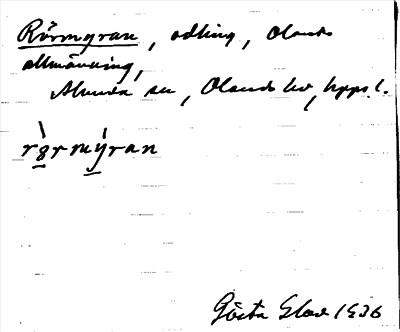 Rörmyran, odling, Olands
allmänning,
Alunda sn, Olands hd, Uppl.
rörmyran
Gösta Elov 1936